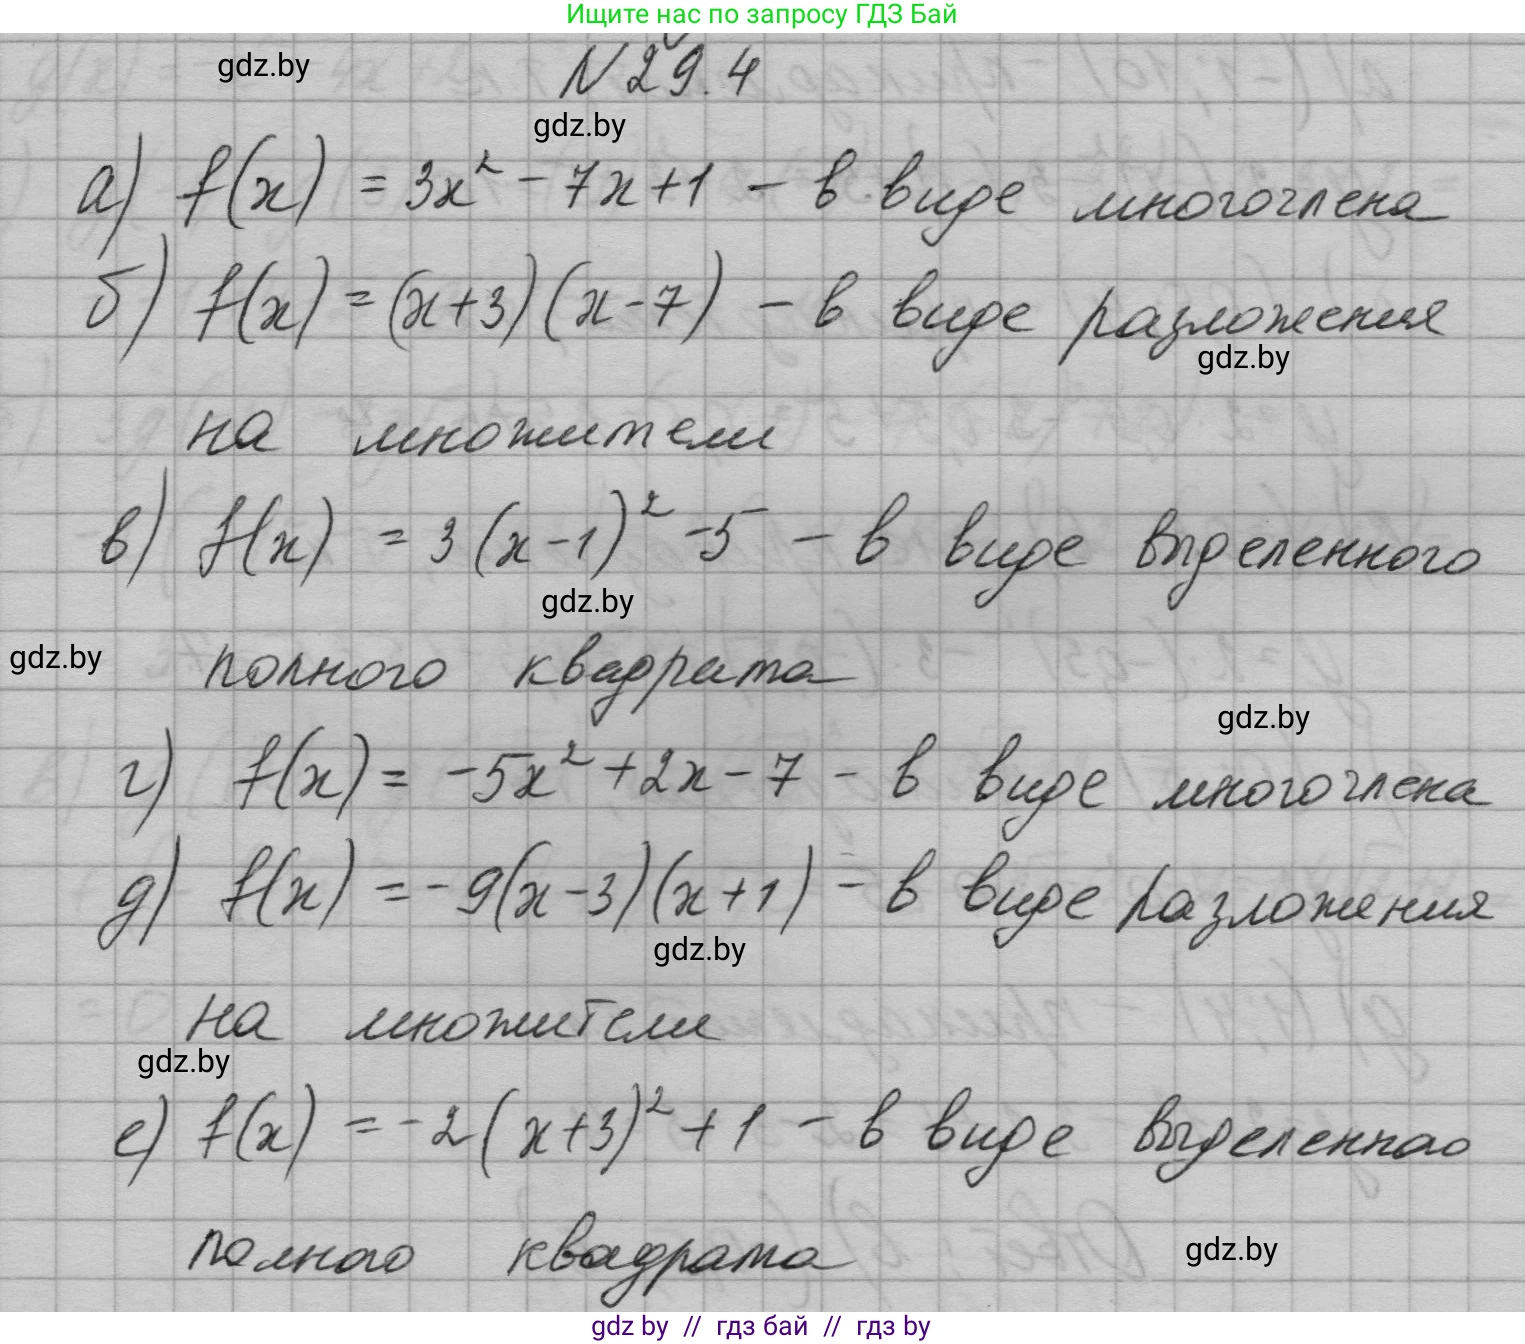 Ищите нас по запросу ГДЗ Бай
gdz.by
N 29.4
gdz.by
а) f(x) = 3x² - 7x + 1 - в виде многочлена
б) f(x) = (x+3)(x-7) - в виде разложения
gdz.by
на множители
в) f(x) = 3(x-1)² - 5 - в виде выделенного
gdz.by
gdz.by
полного квадрата
gdz.by
г) f(x) = -5x² + 2x - 7 - в виде многочлена
д) f(x) = -9(x-3)(x+1) - в виде разложения
gdz.by
на множители
gdz.by
е) f(x) = -2(x+3)² + 1 - в виде выделенного
полного квадрата
gdz.by
gdz by // гдз бай // гдз by